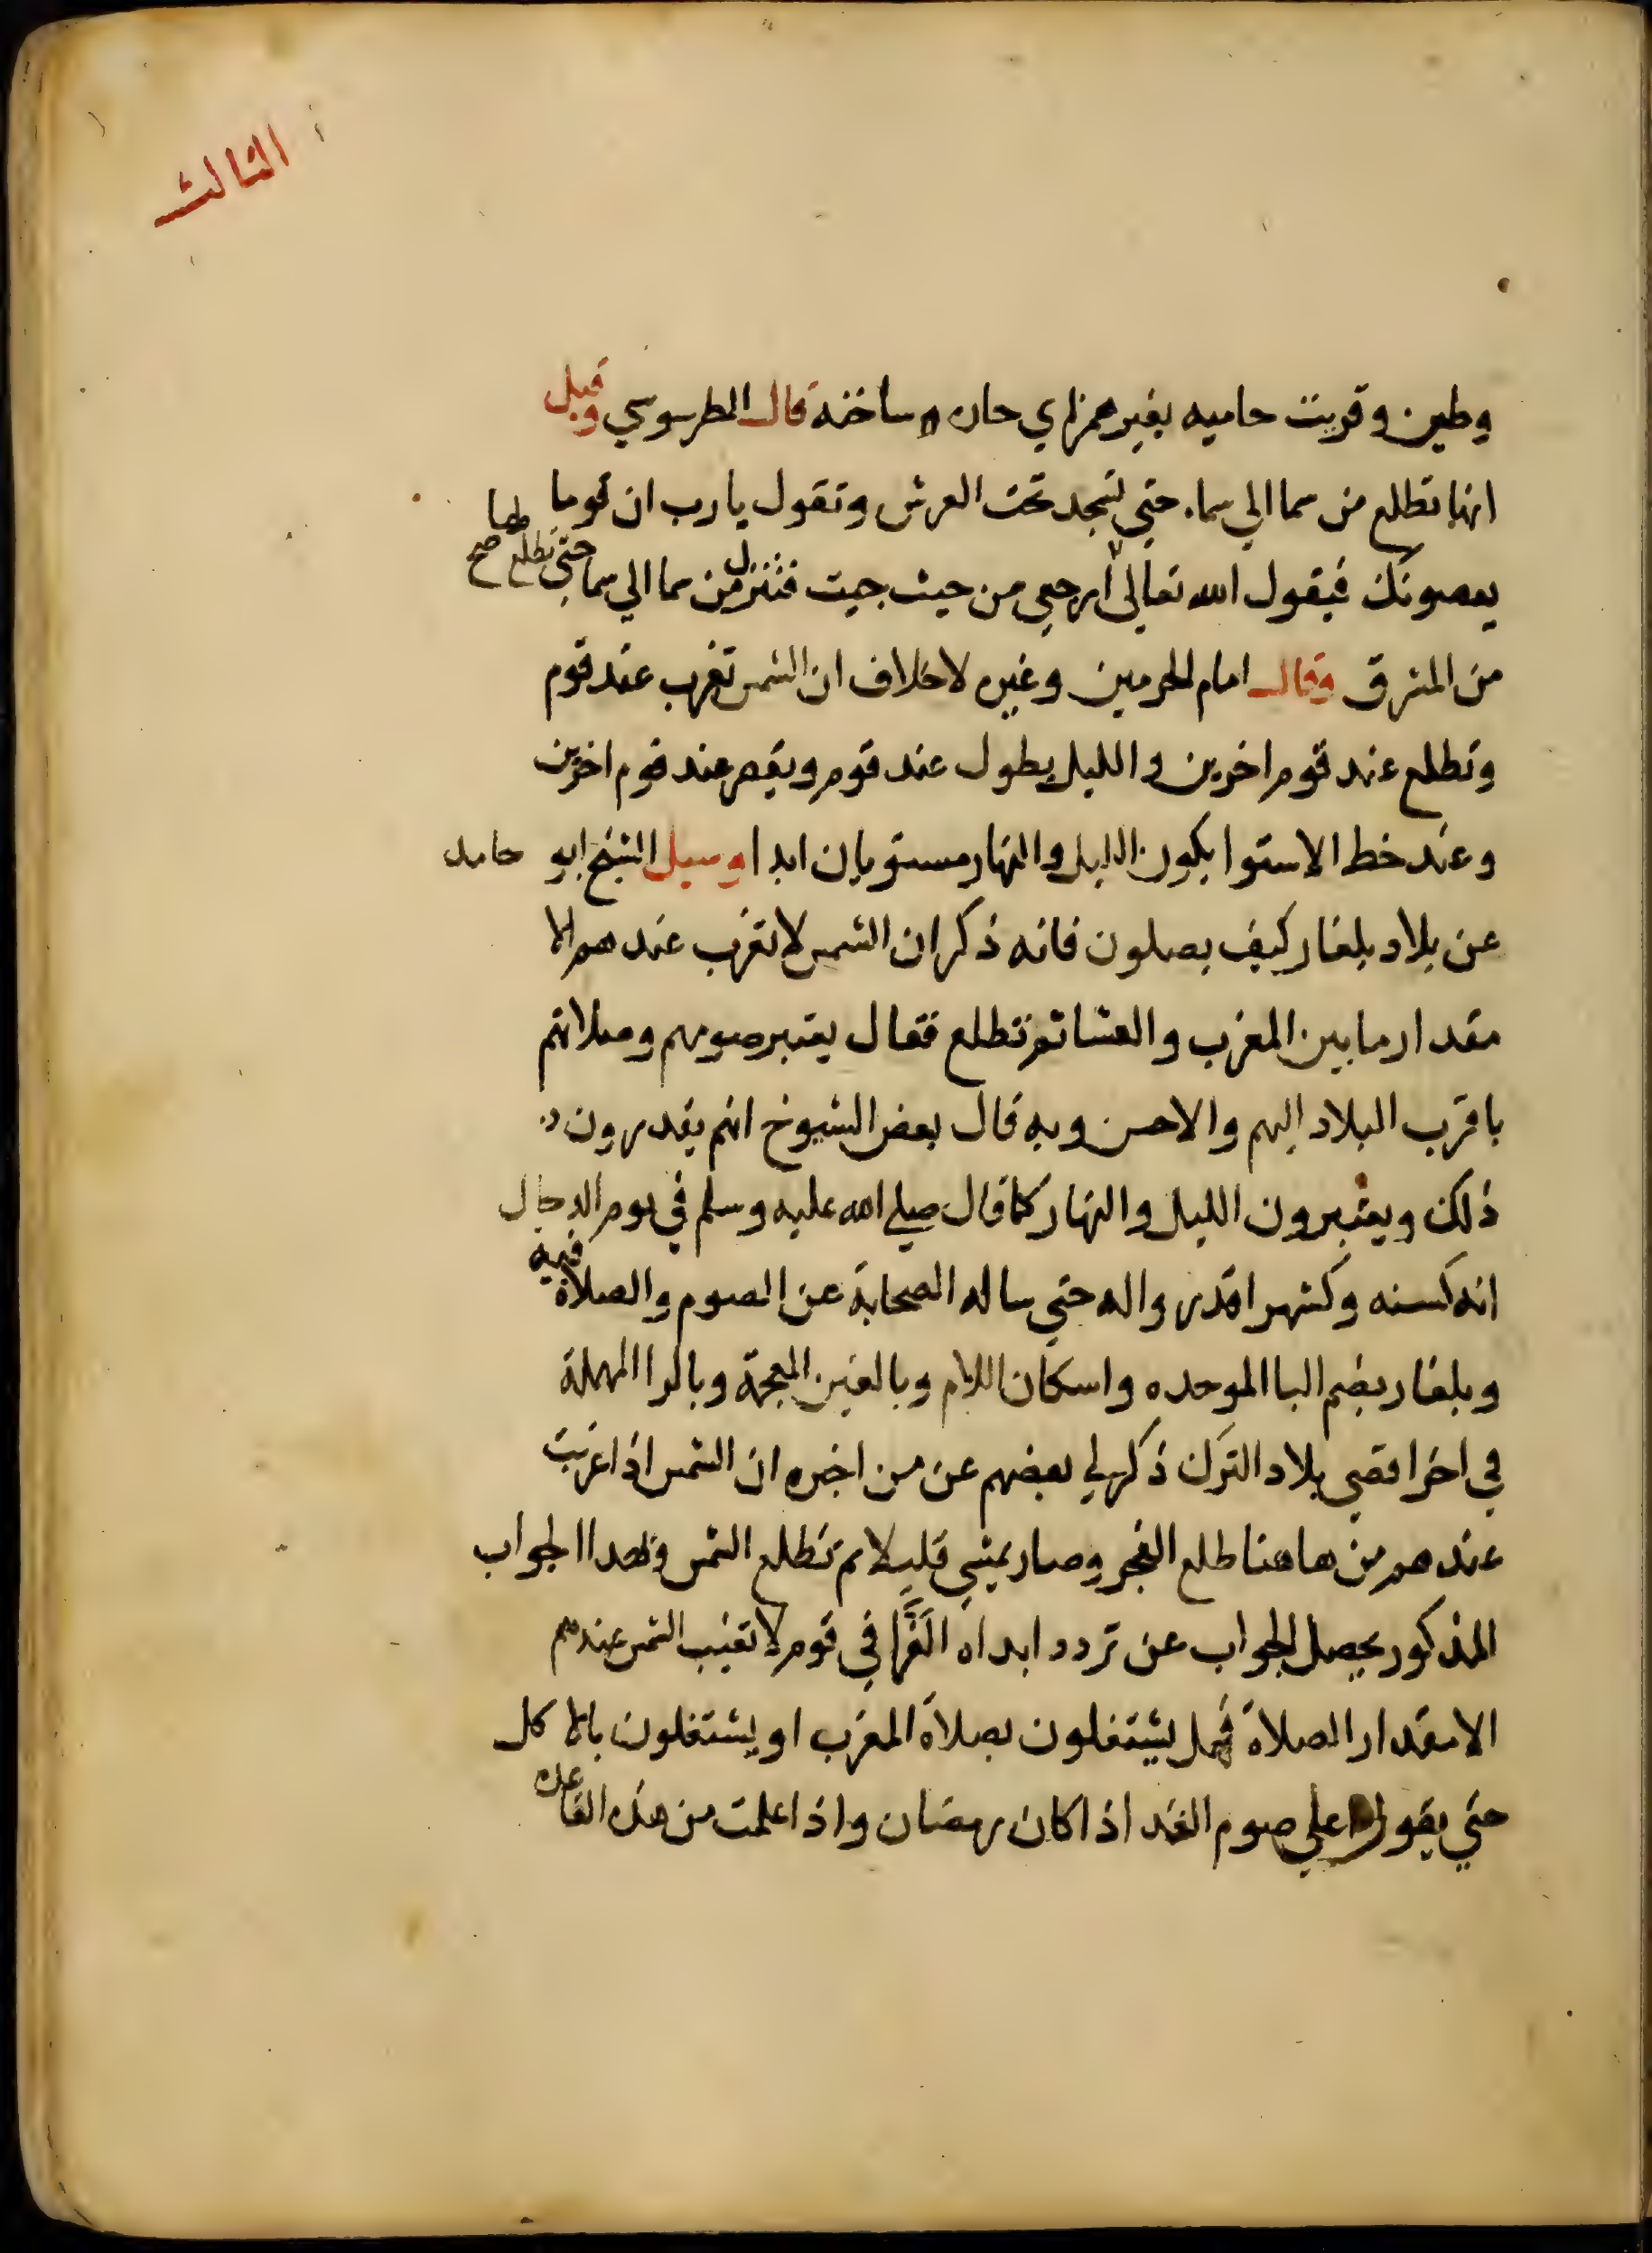 الثالث
وطين وقريت حاميه بغير همز اي حاره ساخنه قال الطرسوسي وقيل
انها تطلع من سما الي سما حتي تسجد تحت العرش وتقول يا رب ان قوما
يعصونك فيقول الله تعالي لها ارجعي من حيث جيت فتنزل من سما الي سما حتي تطلع صح
من المشرق وقال امام الحرمين وغيره لا خلاف ان الشمس تغرب عند قوم
وتطلع عند قوم اخرين والليل يطول عند قوم ويقصر عند قوم اخرين
وعند خط الاستوا يكون الليل والنهار مستويان ابدا وسيل الشيخ ابو حامد
عن بلاد بلغار كيف يصلون فانه ذكر ان الشمس لا تغرب عندهم الا
مقدار ما بين المغرب والعشا ثم تطلع فقال يعتبر صومهم وصلاتهم
باقرب البلاد اليهم والاحسن وبه قال بعض الشيوخ انهم يقدرون
ذلك ويعتبرون الليل والنهار كما قال صلي الله عليه وسلم في يوم الدجال
انه كسنه وكشهر اقدروا له حتي ساله الصحابة عن الصوم والصلاة فيه
وبلغار بضم البا الموحده واسكان اللام وبالغين المعجمة وبالرا المهملة
في اخر اقصي بلاد الترك ذكر لي بعضهم عن من اخبره ان الشمس اذا غربت
عندهم من هاهنا طلع الفجر وصار يمشي قليلا ثم تطلع الشمس وبهدا الجواب
المذكور يحصل الجواب عن تردد ابداه القرافي في قوم لا تغيب الشمس عندهم
الا مقدار الصلاة فهل يشتغلون بصلاة المغرب او يشتغلون بالاكل
حتي يقووا علي صوم الغد اذا كان رمضان واذا علمت من هذه القاعده